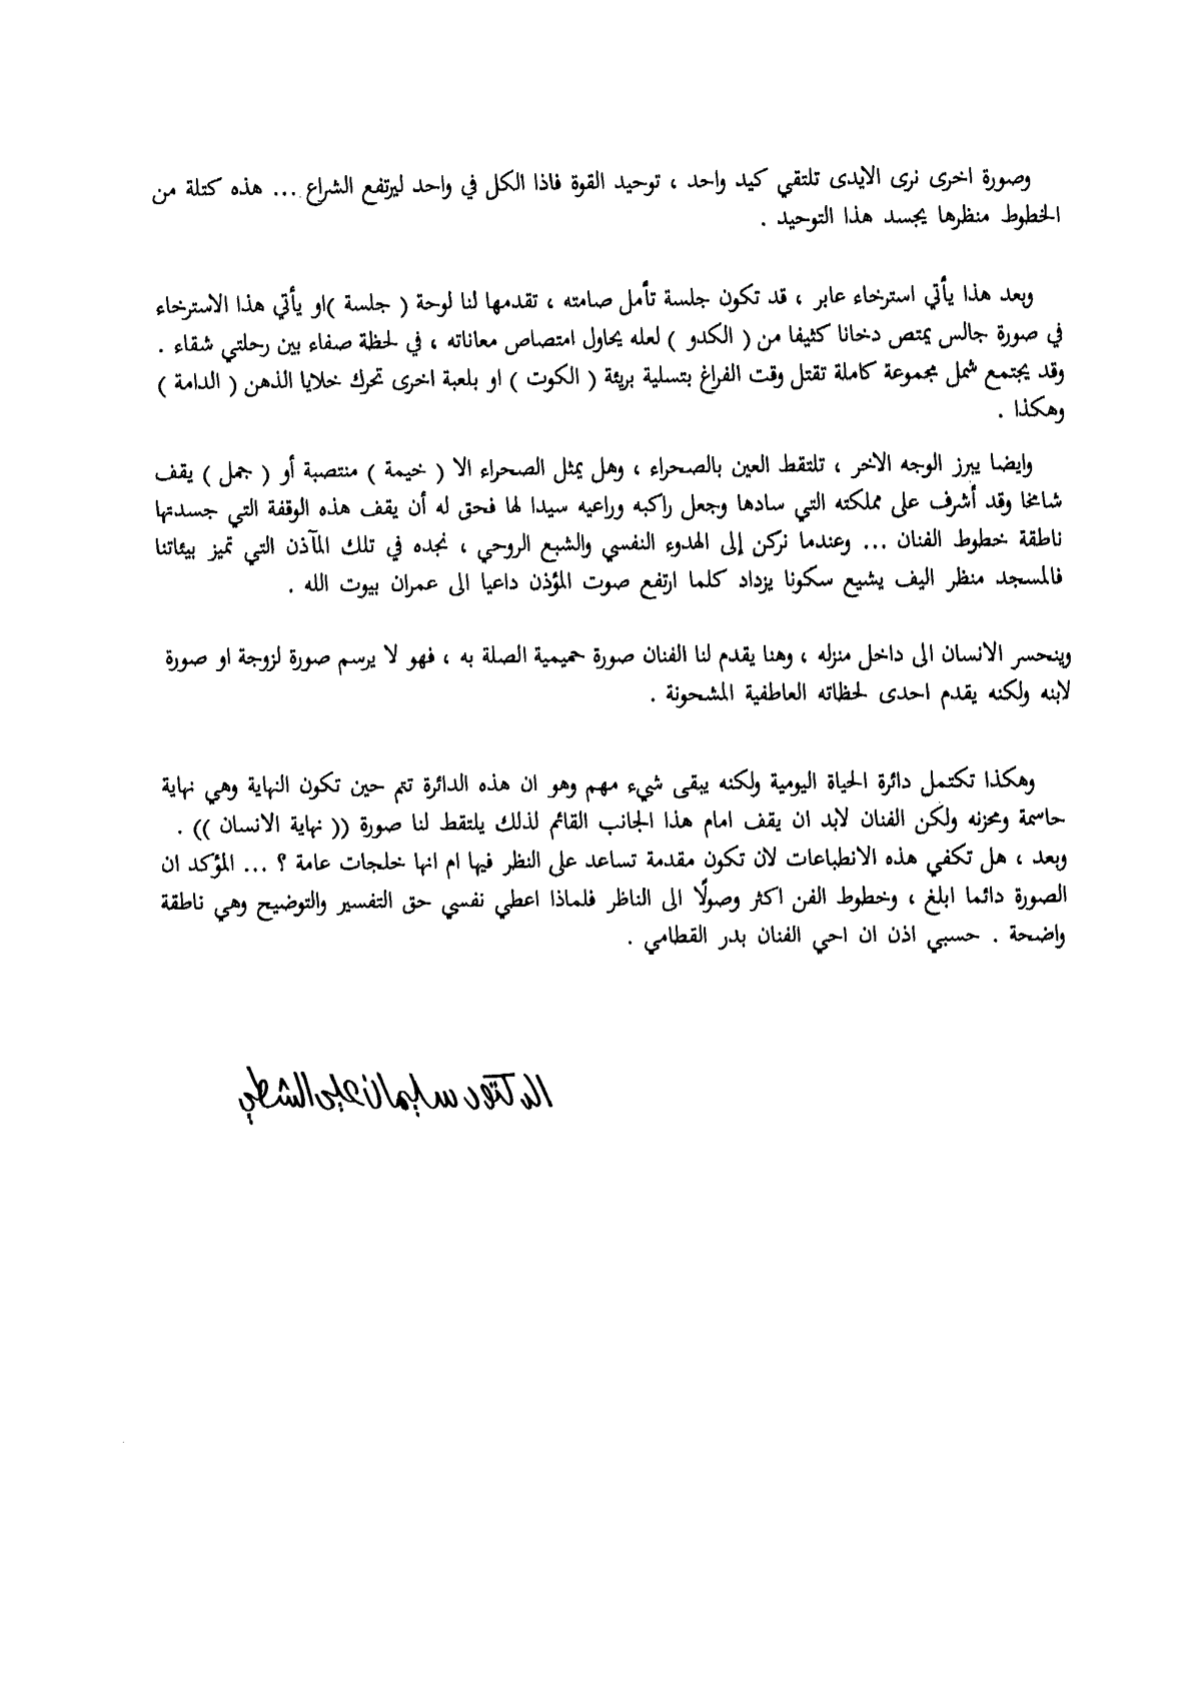 وصورة اخرى نرى الايدى تلتقي كيد واحد ، توحيد القوة فاذا الكل في واحد ليرتفع الشراع ... هذه كتلة من
الخطوط منظرها يجسد هذا التوحيد .
وبعد هذا يأتي استرخاء عابر ، قد تكون جلسة تأمل صامته ، تقدمها لنا لوحة ( جلسة )او يأتي هذا الاسترخاء
في صورة جالس يمتص دخانا كثيفا من ( الكدو ) لعله يحاول امتصاص معاناته ، في لحظة صفاء بين رحلتي شقاء .
وقد يجتمع شمل مجموعة كاملة تقتل وقت الفراغ بتسلية بريئة ( الكوت ) او بلعبة اخرى تحرك خلايا الذهن ( الدامة )
وهكذا .
وايضا يبرز الوجه الاخر ، تلتقط العين بالصحراء ، وهل يمثل الصحراء الا ( خيمة ) منتصبة أو ( جمل ) يقف
شامخا وقد أشرف على مملكته التي سادها وجعل راكبه وراعيه سيدا لها فحق له أن يقف هذه الوقفة التي جسدتها
ناطقة خطوط الفنان ... وعندما نركن إلى الهدوء النفسي والشبع الروحي ، نجده في تلك المآذن التي تميز بيئاتنا
فالمسجد منظر اليف يشيع سكونا يزداد كلما ارتفع صوت المؤذن داعيا الى عمران بيوت الله .
وينحسر الانسان الى داخل منزله ، وهنا يقدم لنا الفنان صورة حميمية الصلة به ، فهو لا يرسم صورة لزوجة او صورة
لابنه ولكنه يقدم احدى لحظاته العاطفية المشحونة .
وهكذا تكتمل دائرة الحياة اليومية ولكنه يبقى شيء مهم وهو ان هذه الدائرة تتم حين تكون النهاية وهي نهاية
حاسمة ومحزنه ولكن الفنان لابد ان يقف امام هذا الجانب القائم لذلك يلتقط لنا صورة (( نهاية الانسان )) .
وبعد ، هل تكفي هذه الانطباعات لان تكون مقدمة تساعد على النظر فيها ام انها خلجات عامة ؟ ... المؤكد ان
الصورة دائما ابلغ ، وخطوط الفن اكثر وصولًا الى الناظر فلماذا اعطي نفسي حق التفسير والتوضيح وهي ناطقة
واضحة . حسبي اذن ان احي الفنان بدر القطامي .
الدكتور سليمان علي الشطي